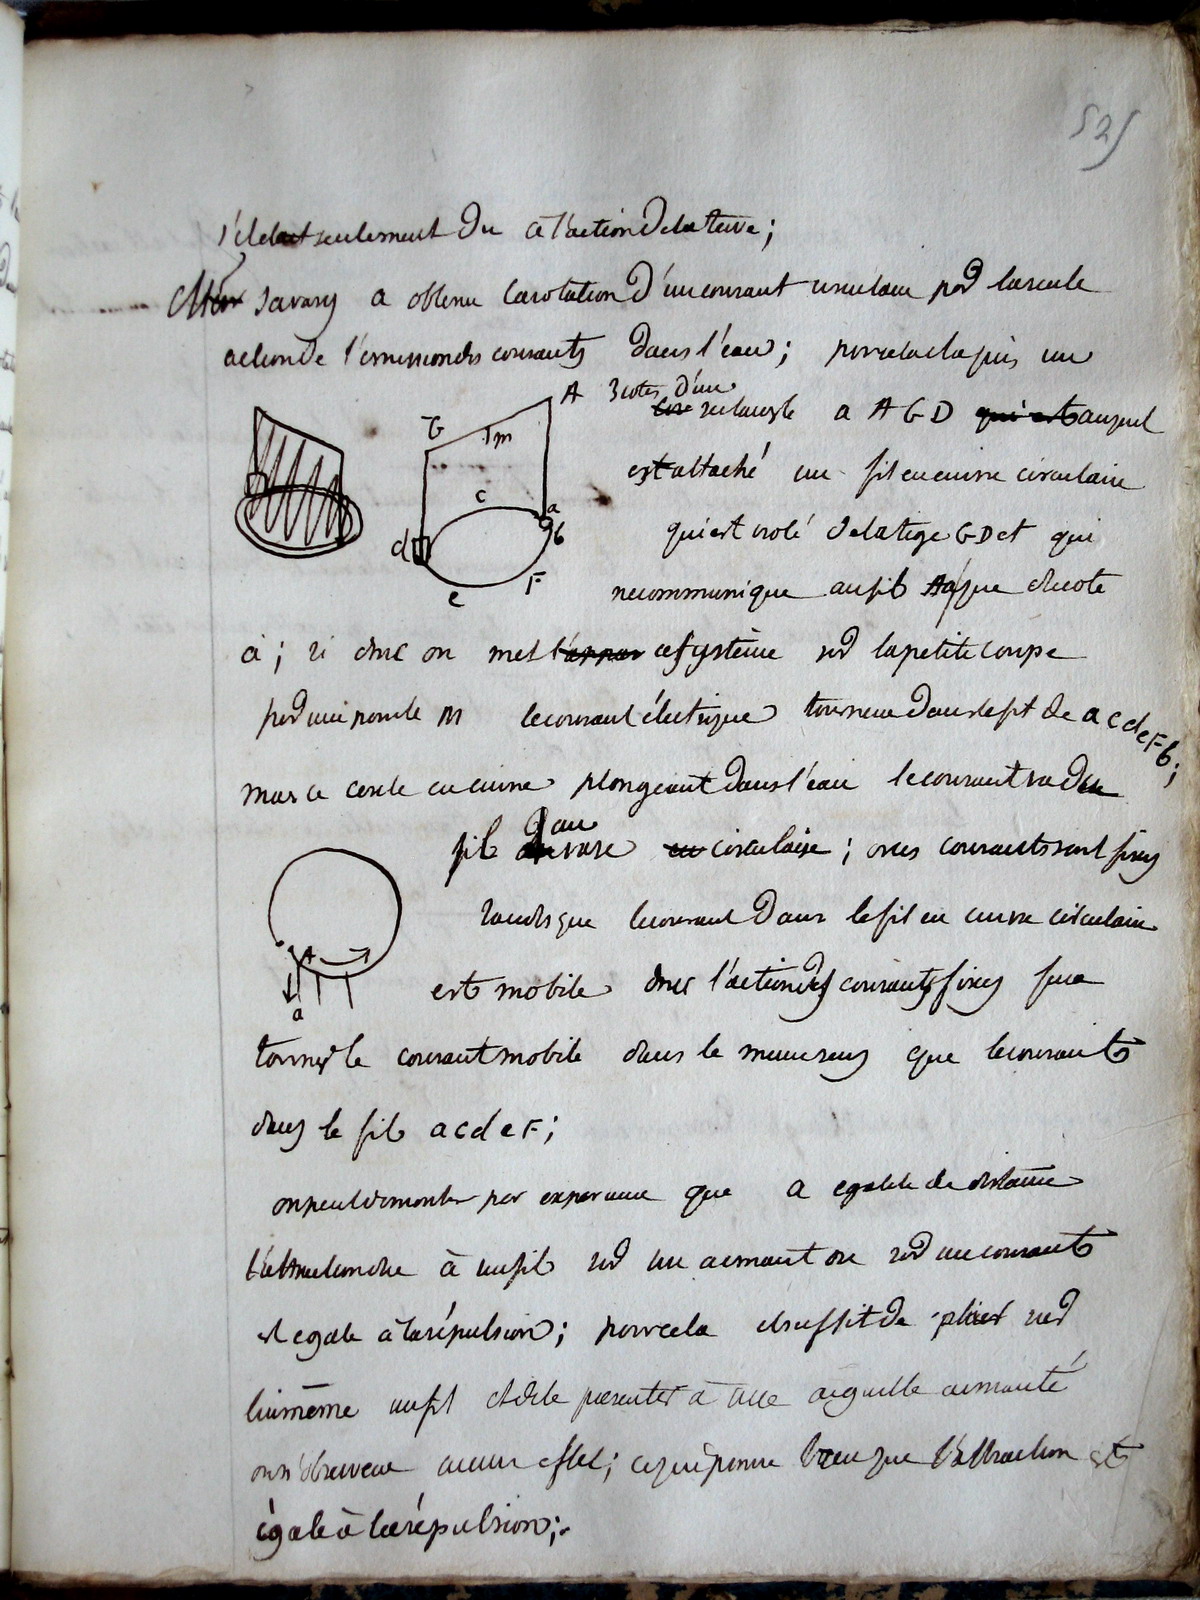 525
seulement du a l'action de la terre;
Mr savary a obtenu la rotation d'un courant circulaire par la seule
action de l'émission des courants dans l'eau; pour cela il a pris un
A 3 cotes d'un
G m rectangle a A G D qui est auquel
est attaché un fil en cuivre circulaire
c a
qui est isolé de la tige G D et qui
d b
e F
ne communique au fil Aa que du cote
a; si donc on met l'appar ce système sur la petite coupe
par une pointe m le courant électrique tournera dans le fil de a c d e F b;
mais ce cercle en cuivre plongeant dans l'eau le courant va du
fil au vase circulaire; or ces courants sont fixes
tandis que le courant dans le fil en cuivre circulaire
est mobile donc l'action des courants fixes fera
a
tourner le courant mobile dans le meme sens que le courant
dans le fil a c d e F;
on peut demontrer par experience que a egalite de distance
l'attraction due à un fil sur un aimant ou sur un courant
est egale à la répulsion; pour cela il suffit de plier sur
lui même un fil et de le presenter à une aiguille aimanté
on n'observera aucun effet; ce qui prouve bien que l'attraction est
égale à la répulsion;.